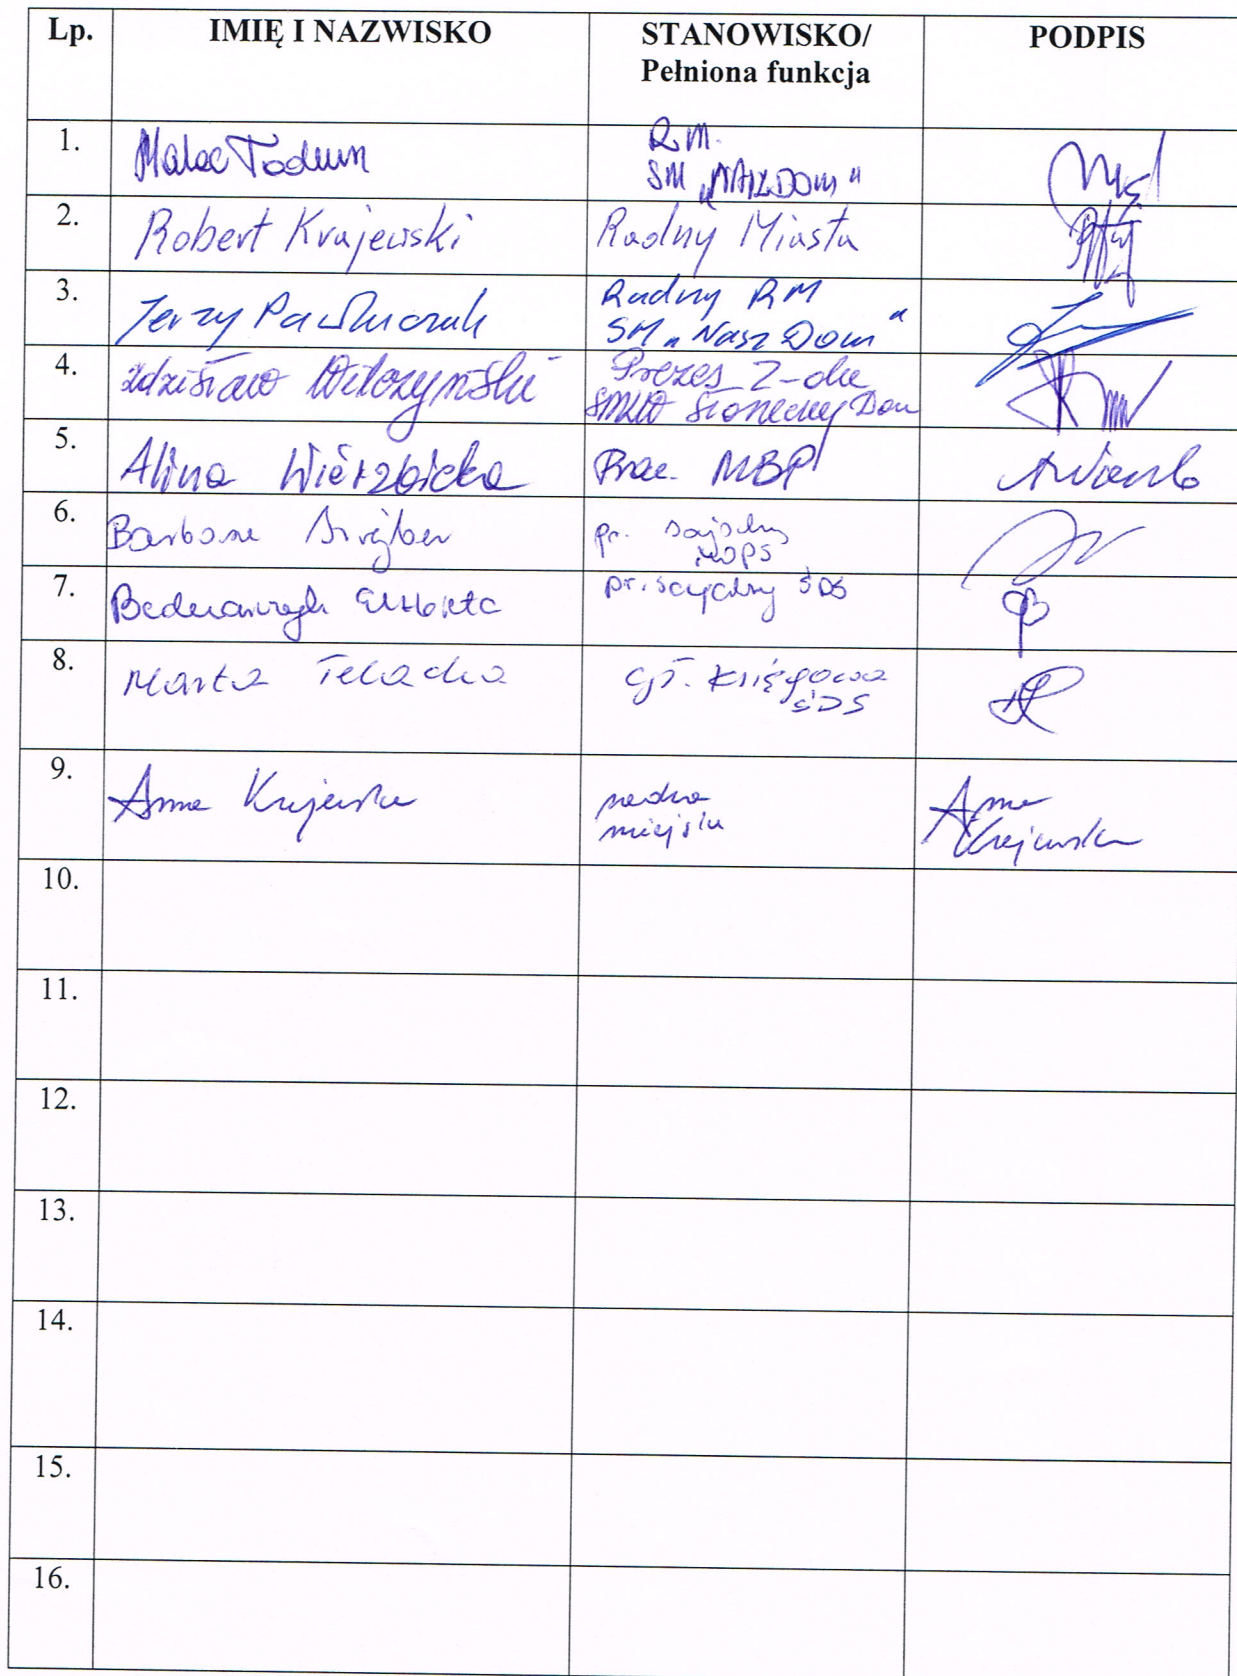 Lp. IMIĘ I NAZWISKO STANOWISKO/ PODPIS
Pełniona funkcja
1. Malec Tadeusz R.M.
SM „NASZ DOM"
2. Robert Krajewski Radny Miasta
3. Jerzy Pawluczuk Radny RM
SM „Nasz Dom"
4. Zdzisław Wilczyński Prezes Z-du
Słoneczny Dom
5. Alina Wierzbicka Prac. MBP
6. Barbara pr. socjalny
MOPS
7. Bednarczyk Elżbieta pr. socjalny ŚDS
8. Marta Gł. księgowa
ŚDS
9. Anna Krajewska radna Anna
miejska Krajewska
10.
11.
12.
13.
14.
15.
16.